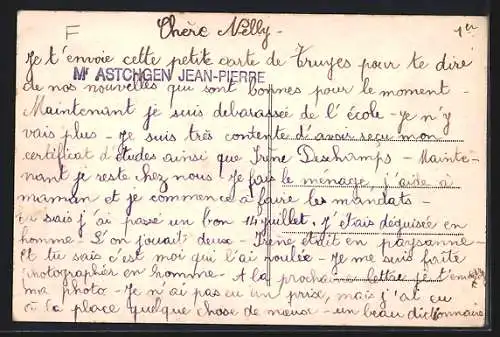 F
Chère Nelly -
1er
Je t'envoie cette petite carte de Truyes pour te dire
Mr ASTCHGEN JEAN-PIERRE
de nos nouvelles qui sont bonnes pour le moment -
Maintenant je suis debarassée de l'école - je n'y
vais plus - Je suis très contente d'avoir reçu mon
certificat d'études ainsi que Irène Deschamps - Mainte-
nant je reste chez nous - Je fais le ménage, j'aide à
maman et je commence à faire les mandats -
tu sais j'ai passé un bon 14 juillet. J'étais déguisée en
homme - L'on jouait deux - Irène était en paysanne -
et tu sais c'est moi qui l'ai roulée - Je me suis faite
photographier en homme - A la prochaine lettre je t'enverrai
ma photo - Je n'ai pas eu un prix, mais j'ai eu
à la place quelque chose de mieux - un beau dictionnaire